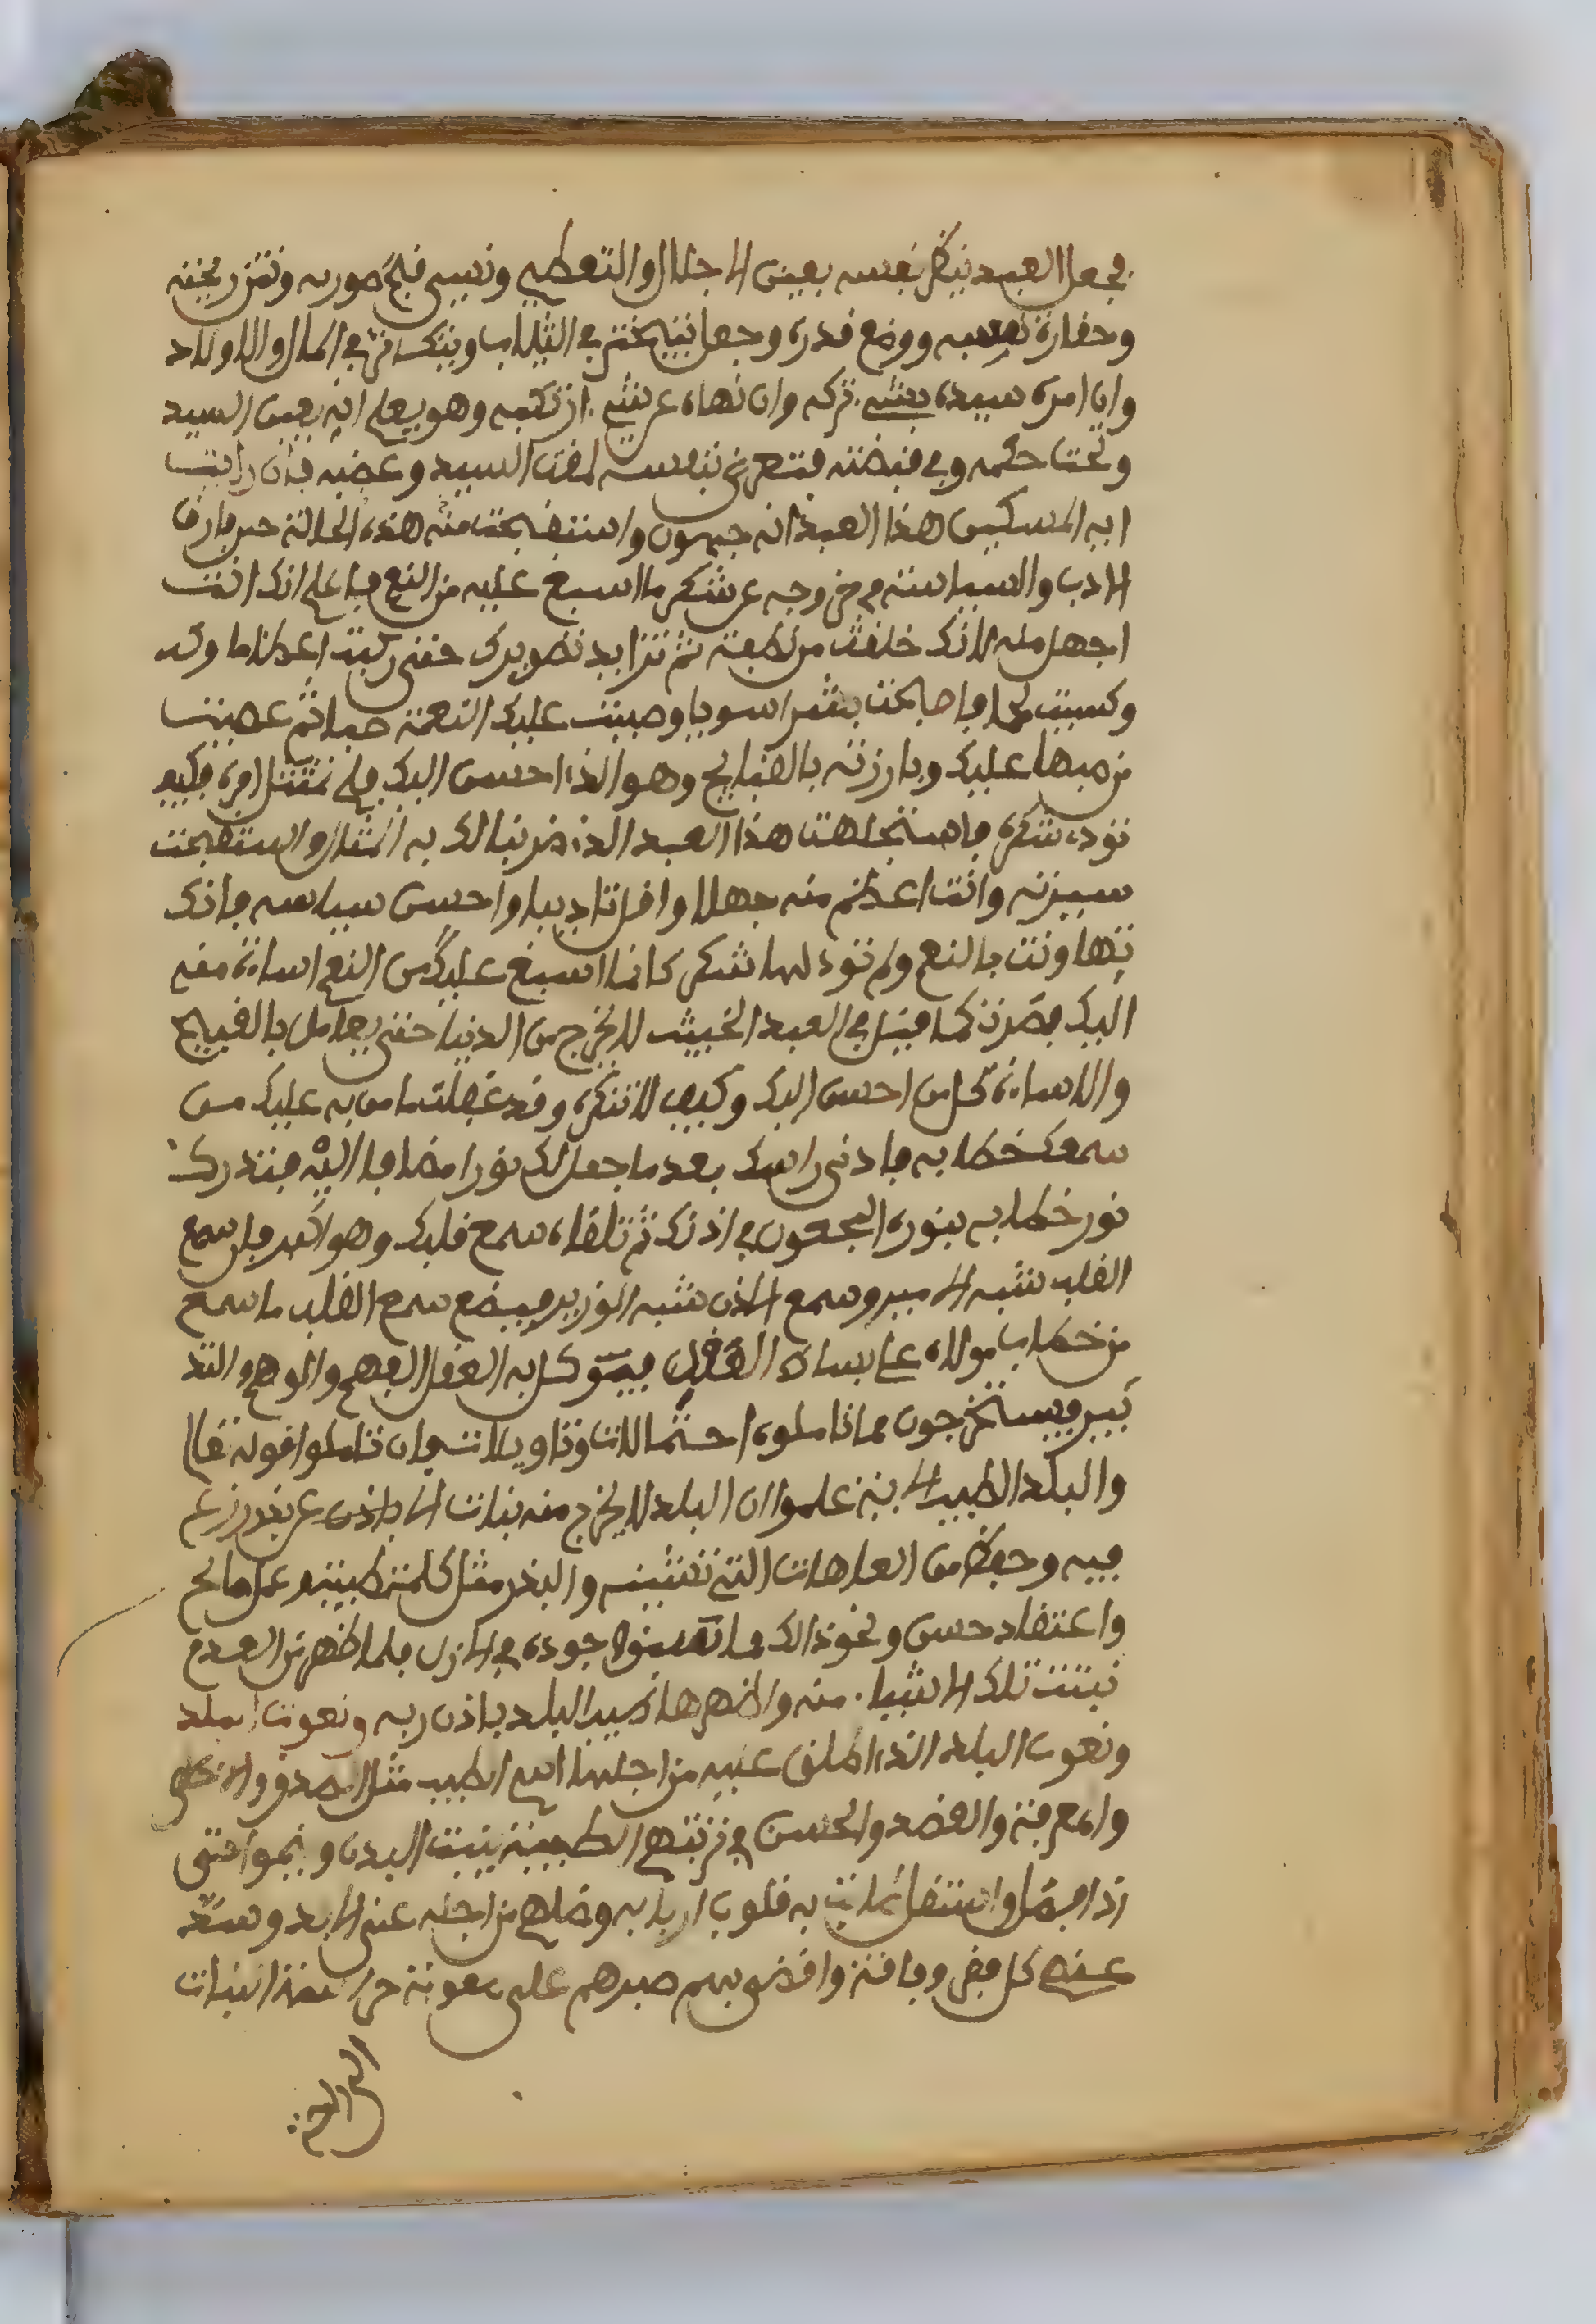 فجعل العبد ينظر نفسه بعين الاجلال والتعظيم ونسي قبح صورته ونتن ريحته
وحقارة نفسه ووضع قدره وجعل يتبختر في الثياب ويتكاثر في المال والاولاد
وان امره سيده بشيء تركه وان نهاه عن شيء ارتكبه وهو يعلم انه بعين السيد
وتحت حكمه وفي قبضته فتعرض بنفسه لمقت السيد وغضبه فان رايت
ايه المسكين هذا العبد انه جنون واستقبحت منه هذه الحالة حين فارق
الادب والسياسة في خروجه عن شكر ما اسبغ عليه من النعم فاعلم انك انت
اجهل منه لانك خلقت من نطفة ثم تزايد تصويرك حتى ركبت اعظاما وقد
وكسيت لحما فاصبحت بشرا سويا وصببت عليك النعمة صبا ثم عصيت
من صبها عليك وبارزته بالقبايح وهو الذي احسن اليك فلم تمتثل امره فكيف
تود شكره فاستجهلت هذا العبد الذي ضربنا لك به المثل واستقبحت
سيرته وانت اعظم منه جهلا واقل تاديبا واحسن سياسه فانك
تهاونت بالنعم ولم تود لها شكر كانما اسبغ عليك من النعم اساءة منه
اليك فصرت كما قيل في العبد الخبيث لا يخرج من الدنيا حتى يعامل بالقبيح
والاساءة كل من احسن اليك وكيف لا تشكره وقد غفلت ما من به عليك من
سمعك خطابه باذني راسك بعد ما جعل لك نورا مضافا اليه فتدرك
نور خطابه بنوره المجعول في اذنك ثم تلقاه سمع قلبك وهو اكبر فان سمع
القلب شبه الامير وسمع الاذن شبه الوزير فيضع سمع القلب ما سمع
من خطاب مولاه على بساط العقل فيتوكل به العقل الفهم والوهم والتد
بير فيستخرجون مما تاملوه احتمالات وتاويلات فان تاملوا قوله تعالى
والبلد الطيب الاية علموا ان البلد لا يخرج منه نبات الا باذن عن بذر زرع
فيه وحفظ من العاهات التي تشينه والبذر مثل كلمة طيبة وعمل صالح
واعتقاد حسن ونحو ذالك مما وجوده في الازل فلما ظهر من العدم
نبتت تلك الاشياء منه واظهرها البلد باذن ربه ونعوت البلد
ونعوت البلد الذي اطلق عليه من اجلها اسم الطيب مثل الصدق والاخلاص
والمعرفة والقصد والحسن في تربتهم الطيبة ينبت البدن وينموا حتى
اذا واستقل به قلوب اربابه وصلهم من اجله عنى الابد وسد
عنهم كل فقر وفاقة وافضى بهم صبرهم على معونة حراسة النبات
الى الرحم